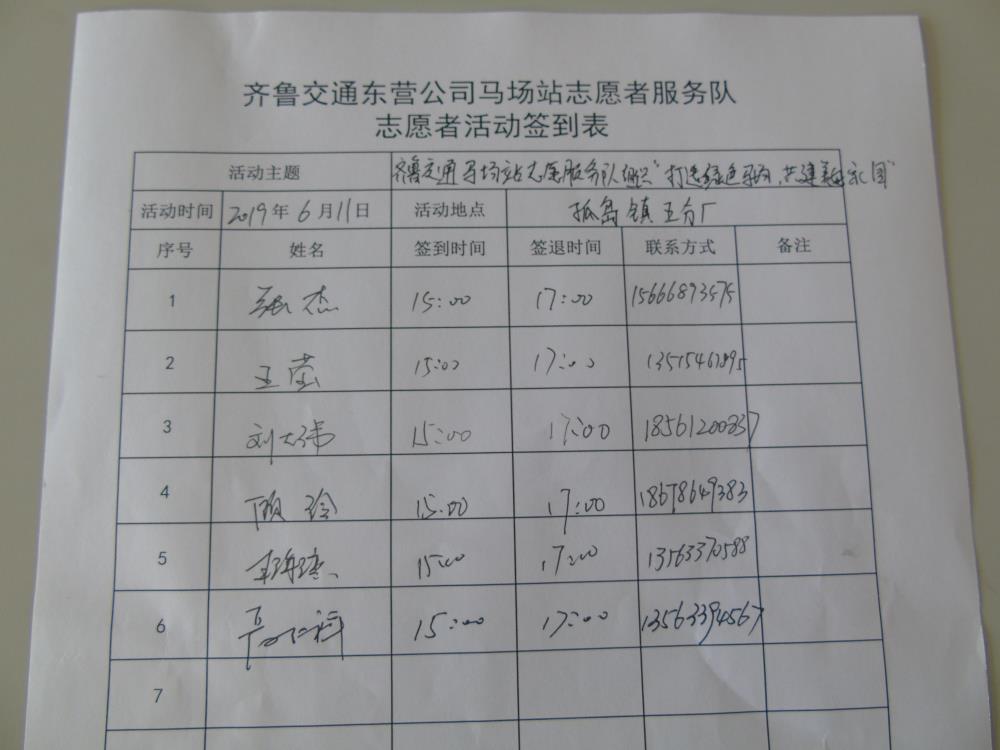 齐鲁交通东营公司马场站志愿者服务队
志愿者活动签到表
活动主题 齐鲁交通马场站志愿服务队组织"打造绿色 共建美丽家园"
活动时间 2019年6月11日 活动地点 孤岛镇五分厂
序号 姓名 签到时间 签退时间 联系方式 备注
1 张杰 15:00 17:00 15666893575
2 王莹 15:00 17:00
3 刘大伟 15:00 17:00 18561200837
4 顾玲 15:00 17:00 18678649383
5 15:00 17:00 13563370588
6 15:00 17:00 13563394567
7